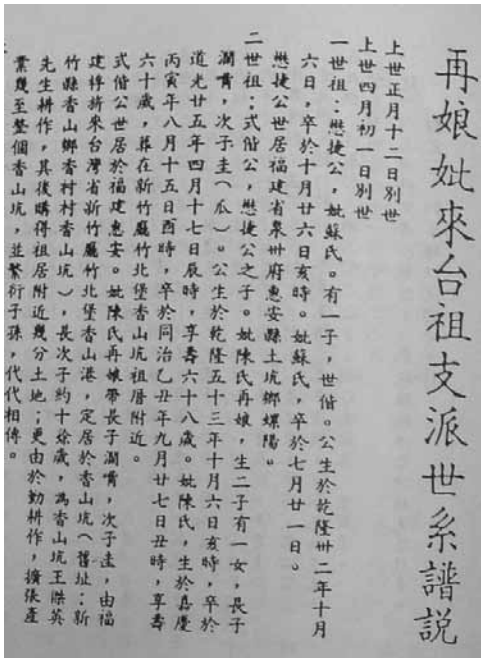 再娘妣來台祖支派世系譜說
上世正月十二日別世
上世四月初一日別世
一世祖：懋捷公，妣蘇氏。有一子，世偕。公生於乾隆卅二年十月
六日，卒於十月廿六日亥時。妣蘇氏，卒於七月廿一日。
懋捷公世居福建省泉州府惠安縣土坑鄉螺陽。
二世祖：式偕公，懋捷公之子。妣陳氏再娘，生二子有一女，長子
潤膏，次子圭（瓜）。公生於乾隆五十三年十月六日亥時，卒於
道光廿五年四月十七日辰時，享壽六十八歲。妣陳氏，生於嘉慶
丙寅年八月十五日酉時，卒於同治乙丑年九月廿七日丑時，享壽
六十歲，葬在新竹廳竹北堡香山坑祖厝附近。
式偕公世居於福建惠安。妣陳氏再娘帶長子潤膏，次子圭，由福
建梓捹來台灣省新竹廳竹北堡香山港，定居於香山坑（舊址：新
竹縣香山鄉香村村香山坑），長次子約十餘歲，為香山坑王傑英
先生耕作，其後購得祖居附近幾分土地；更由於勤耕作，擴張產
業幾至整個香山坑，並繁衍子孫，代代相傳。